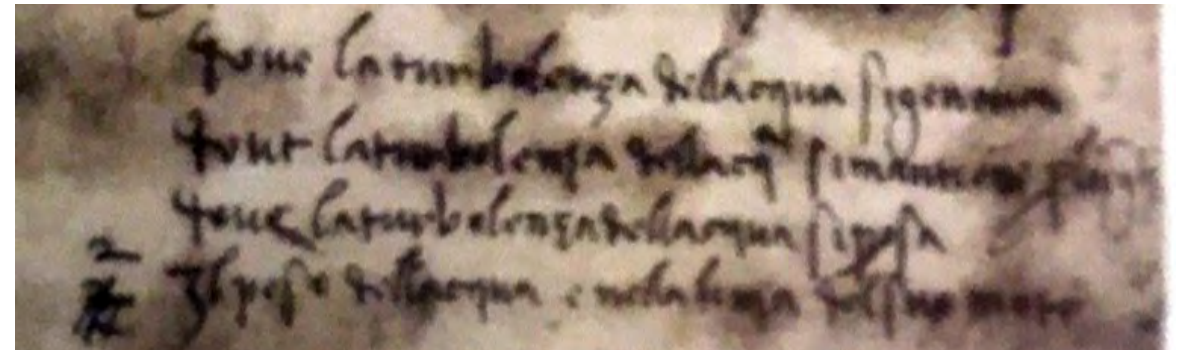 doue laturbolenza dellacqua sigenera
doue laturbolenza dellacq simantiene plugho
doue laturbolenza dellacqua siposa
Il peso dellacqua e nella linea del suo moto